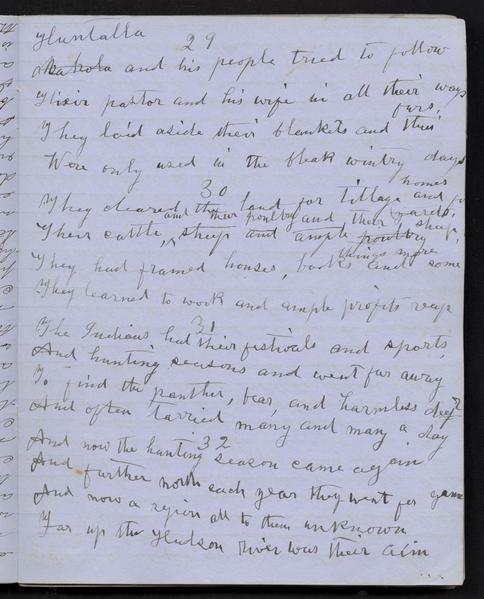 Huntalla
29
and his people tried to follow
Their pastor and his wife in all their ways
They laid aside their blankets and their furs,
Were only used in the bleak wintry days
30
They cleared the land for tillage and for homes
Their cattle, and their poultry and their yards,
sheep and ample poultry sheep,
They had framed houses, books and some things more
They learned to work and ample profits reap
31
The Indians had their festivals and sports,
And hunting seasons and went far away
To find the panther, bear, and harmless deer
And often tarried many and many a day
32
And now the hunting season came again
And further north each year they went for game
And now a region all to them unknown
Far up the Hudson river was their aim